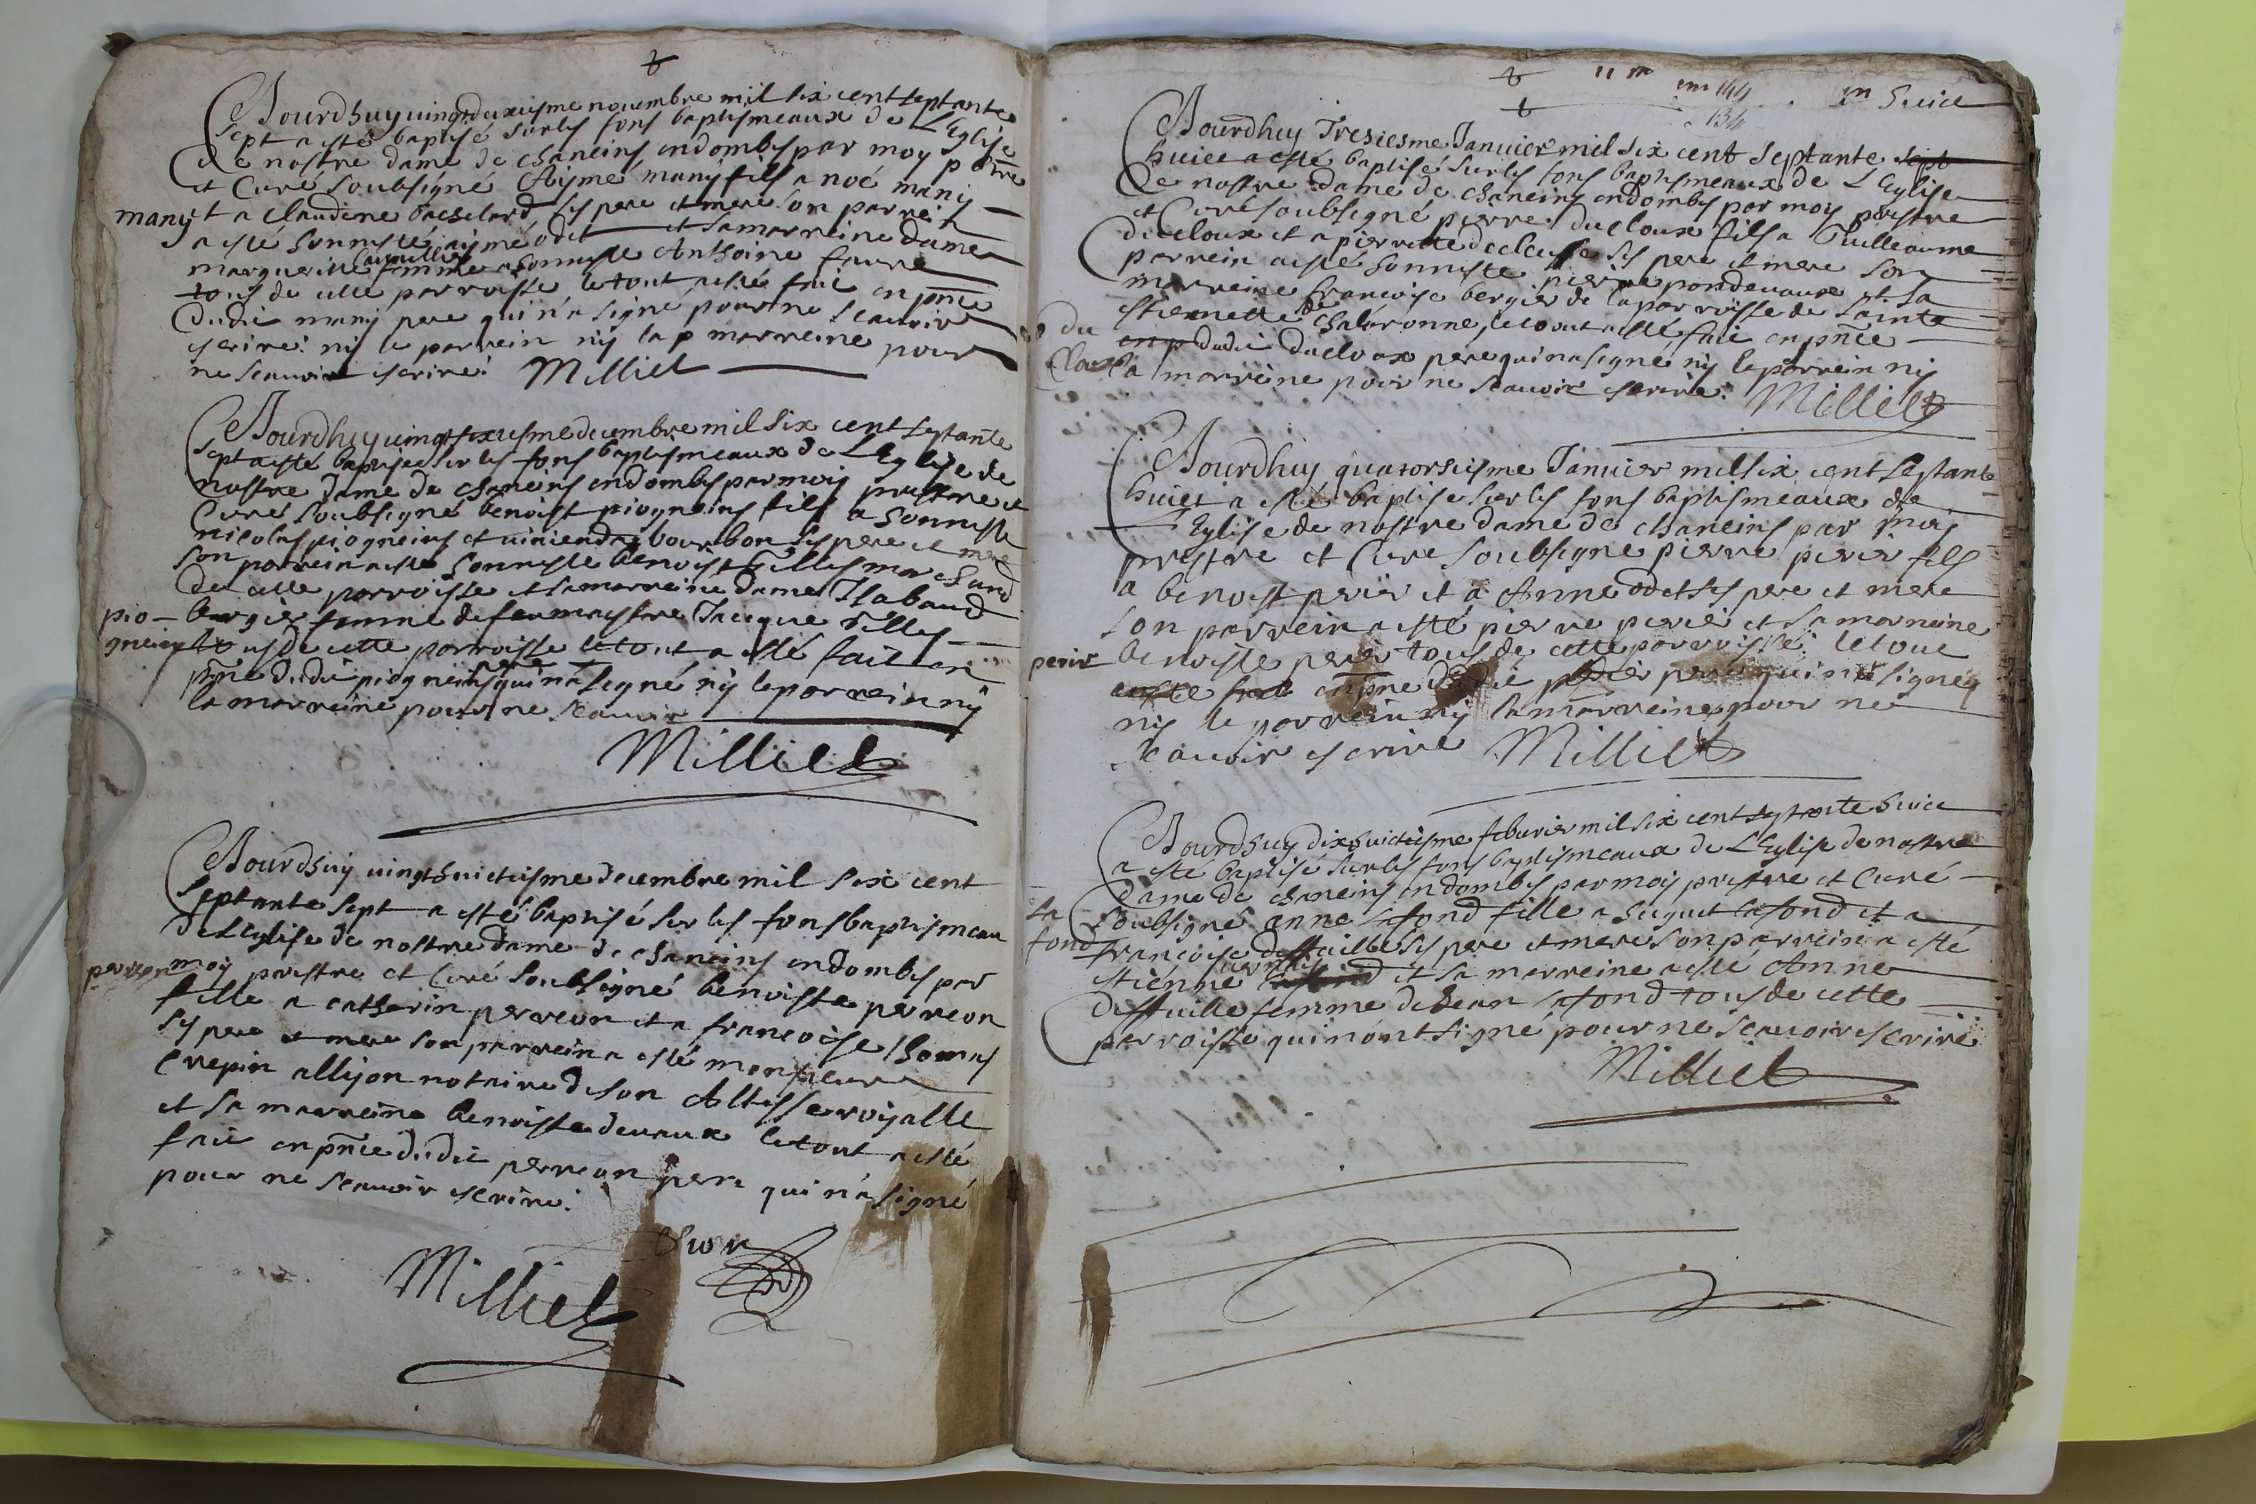 Aourdhuy vingtdeuxiesme novembre mil six cent septante
sept a esté baptisé sur les fons baptismeaux de L'Eglise
de nostre dame de chaneins en dombes par moy pbtre
et Curé soubsigné Aymé many fils a noé many
many
et a Claudine bachelard ses pere et mere son parrein
a esté honneste aymé odet et sa marreine dame
marguerite femme a honneste Anthoine faure
tous de cette parroisse le tout a esté fait en pnce
dudit many pere qui n'a signé pour ne scavoir
escrire ny le parrein ny la p marreine pour
ne scavoir escrire. Milliet
Aourdhuy vingtsixiesme decembre mil six cent septante
sept a esté baptisé sur les fons baptismeaux de L'Eglise de
nostre dame de chaneins en dombes par moy prestre et
Curé soubsigné benoist piogneins fils a honneste
nicolas piogneins et a viniende bourbon ses pere et mere
son parrein a esté honneste benoist Tilles marchand
de cette parroisse et sa marreine dame Isabaud
pio-
gneins
bergier femme de feu maistre Jacque Tilles
tous de cette parroisse le tout a esté fait en
pnce dudit piogneins pere qui n'a signé ny le parrein ny
la marreine pour ne scavoir
Milliet
Aourdhuy vingthuictiesme decembre mil six cent
septante sept a esté baptisé sur les fons baptismeau
de L'Eglise de nostre dame de chaneins en dombes par
perreon
moy prestre et Curé soubsigné benoiste perreon
fille a catherin perreon et a francoise thomas
ses pere et mere son parrein a esté monsieur
Crepin allijon notaire de son Altesse royalle
et sa marreine benoiste devaux le tout a esté
fait en pnce dudit perreon pere qui n'a signé
pour ne scavoir escrire.
Milliet
11 m
144
134
m huict
Aourdhuy Tresiesme Janvier mil six cent septante sept
huict a esté baptisé sur les fons baptismeaux de L'Eglise
de nostre dame de chaneins en dombes par moy prestre
et Curé soubsigné pierre ducloux fils a Guilleaume
ducloux et a pierrette decleusse ses pere et mere son
parrein a esté honneste pierre pondevaux et sa
marreine francoise bergier de la parroisse de sainte
estiennette de chalaronne, le tout a esté fait en pnce
du
Cloux
en p dudit ducloux pere qui n'a signé ny le parrein ny
la marreine pour ne scavoir escrire. Milliet
Aourdhuy quatorsiesme Janvier mil six cent septante
huict a esté baptisé sur les fons baptismeaux de
L'Eglise de nostre dame de chaneins par moy
prestre et Curé soubsigné pierre perier fils
a benoist perier et a Anne odet ses pere et mere
son parrein a esté pierre perié et sa marreine
perier
benoiste perier tous de cette parroisse. le tout
a esté fait en pnce dudit perier pere qui n'a signé
ny le parrein ny la marreine pour ne
scavoir escrire Milliet
Aourdhuy dixhuictiesme febvrier mil six cent septante huict
a esté baptisé sur les fons baptismeaux de L'Eglise de nostre
dame de chaneins en dombes par moy prestre et Curé
soubsigné anne lafond fille a huguet lafond et a
la
fond
francoise desfaille ses pere et mere son parrein a esté
estienne et sa marreine a esté Anne
desfaille femme de Jean lafond tous de cette
parroisse qui n'ont signé pour ne scavoir escrire
Milliet